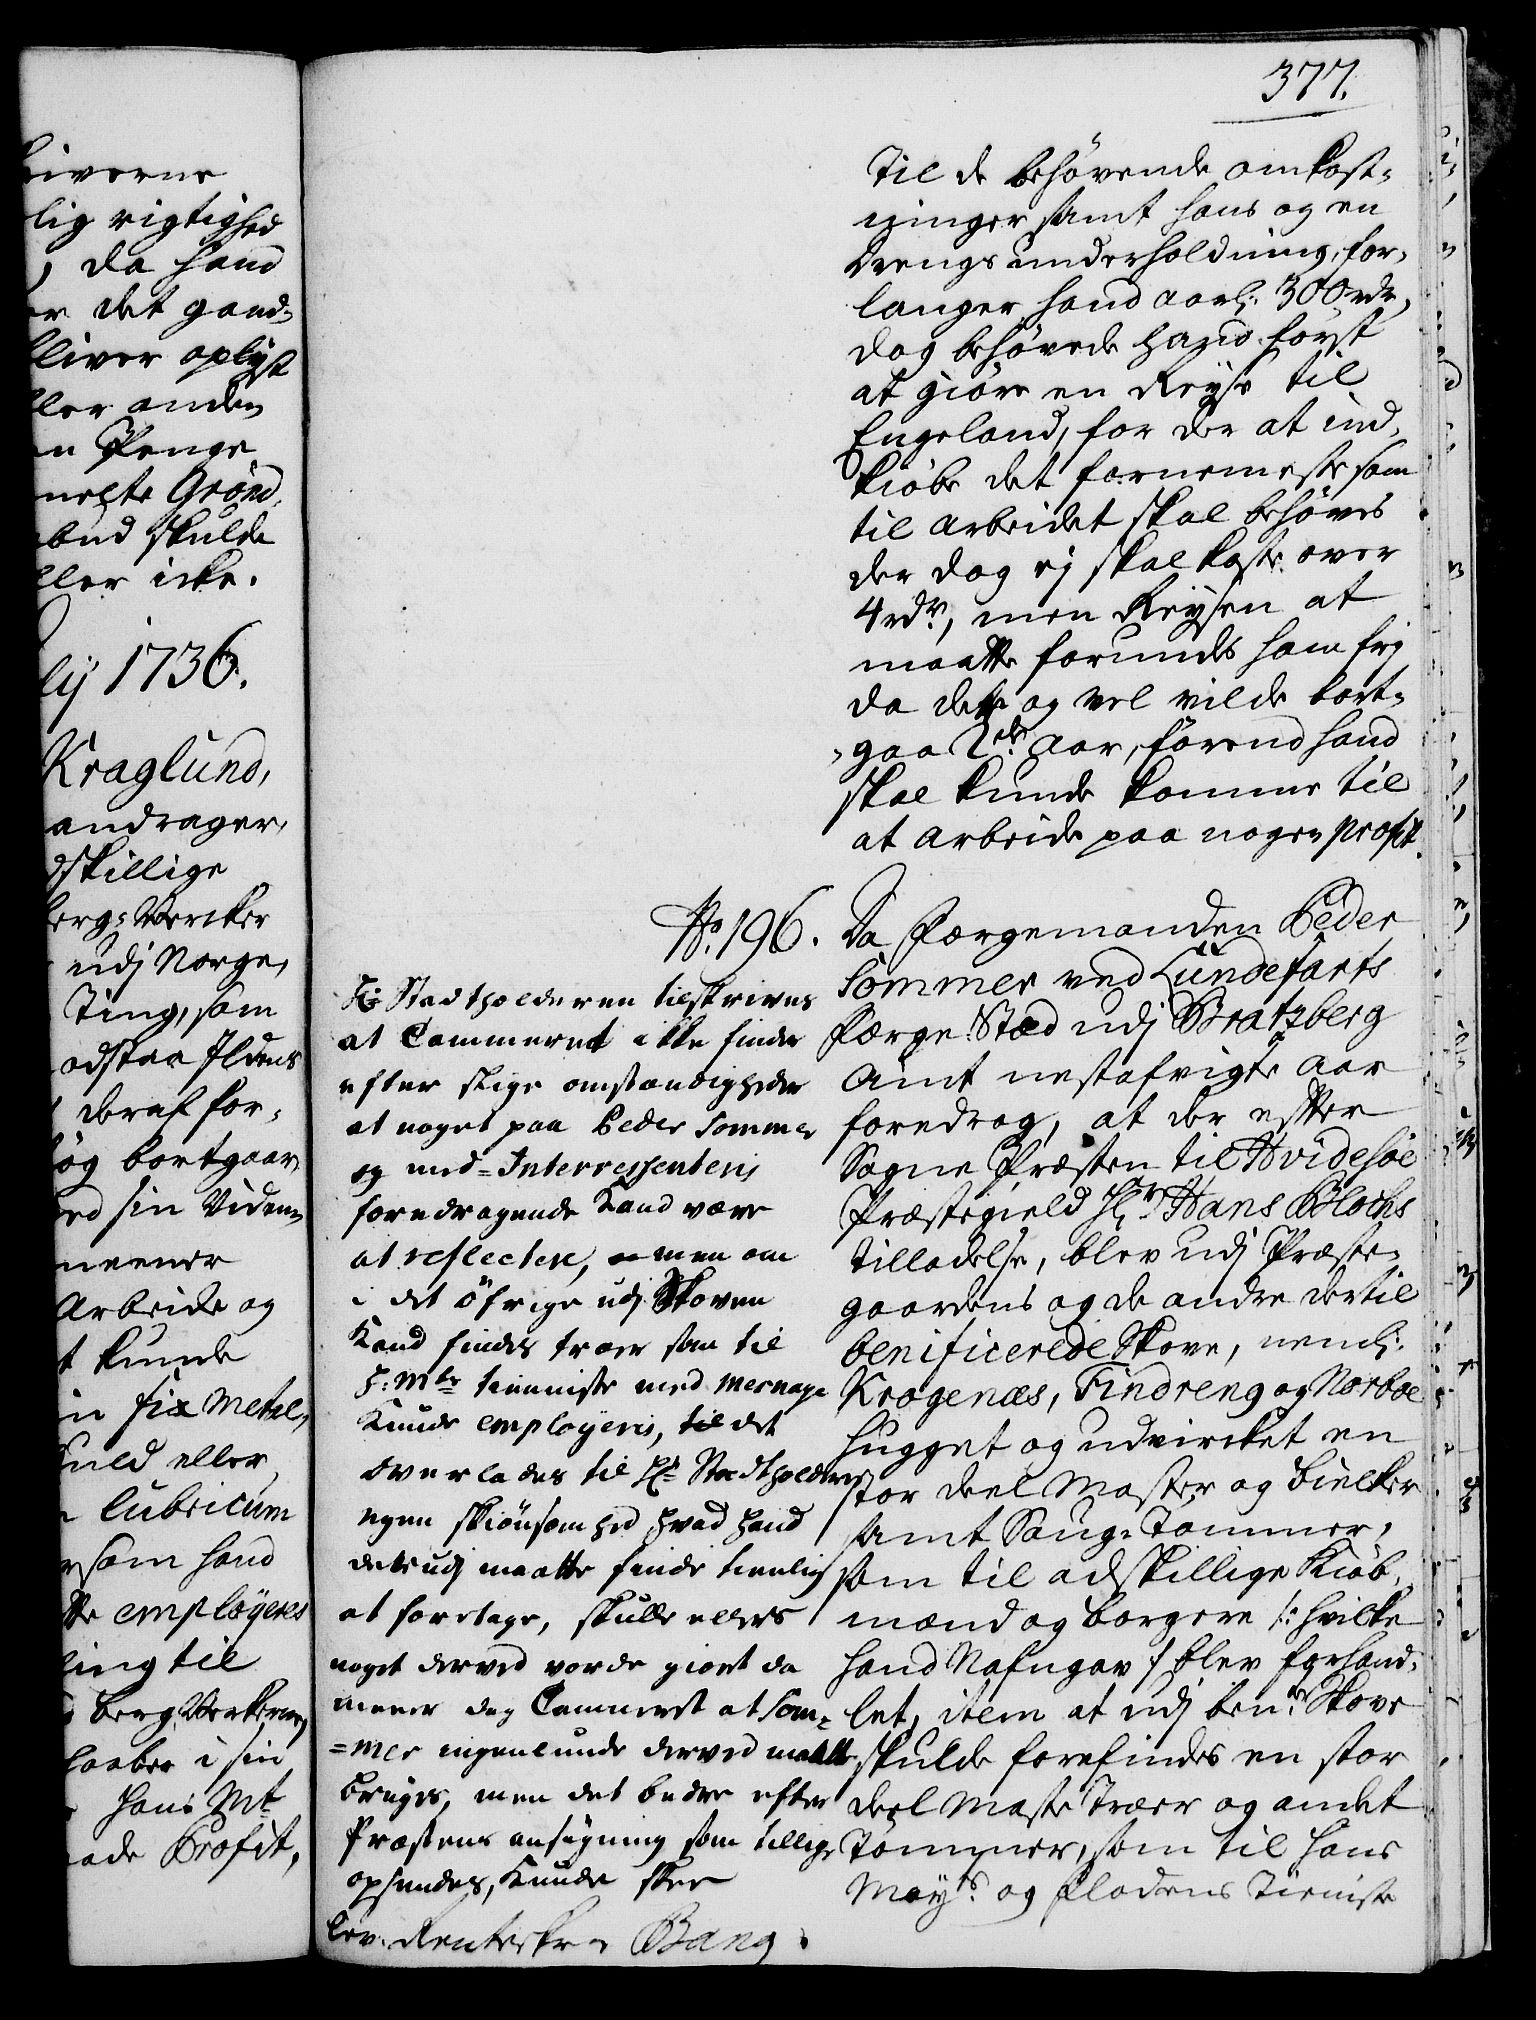 377.
Til de behövende omkost-
ninger samt hans og en
Drengs underholdning, for-
langer hand aarl: 300 rdr,
dog behövede hand först
at giöre en Reyse til
Engeland, for der at ind-
kiöbe det fornemeste som
til arbeidet skal behöves
der dog ej skal koste over
4 rdr, men Reysen at
maatte forundes ham frj
da dette og vel vilde bort-
-gaa 2de Aar, förend hand
skal kunde komme til
at arbeide paa nogen Profit.
No. 196. Da Færgemanden Peder
Sommer ved Lundefarts
Færge-Stæd udj Bratzberg
Amt nestafvigte Aar
foredrog, at der efter
Sogne Præsten til Hvidesöe
Præstegield Hr. Hans Blochs
tilladelse, blev udj Præste-
gaardens og de andre dertil
benificerede Skove, neml:
Kragenæs, Findreng og Norboe
hugget og udvircket en
stor deel Master og Bielker
samt Saug-Tommer,
som til adskillige Kiöb-
mænd og borgere /: hvilke
hand Nafngav :/ blev forhand-
let, item at udj bente Skove
skulde forefindes en stor
deel Maste Træer og andet
Tömmer, som til Hans
Mayts og Flodens Tieniste
Hr Stadtholderen tilskrives
at Cammeret ikke finder
efter slige omstændigheder
at noget paa Peder Sommer
og med-Interressenteris
foredragende Kand være
at reflectere, men om
i det öfrige udj Skoven
Kand findes træer som til
H: Mts tienniste med menage
Kunde employeris, det
overlades til Hr Stadtholderens
egen skiönsomhed hvad hand
derudj maatte finde tienlig
at foretage, skulle ellers
noget derved vorde giort da
meener dog Cammeret at Som-
=mer ingenlunde derved maatte
bruges, men det bedre efter
Præstens ansögning som tillige
opsendes, Kunde skee
lev. Renteskr Bang.
iverne
lig rigtighed
, da hand
er det gand-
bliver oplyst
ller anden
n Penge
melte Grönd
bud skulde
ller icke.
lij 1736.
Kraglund,
andrager,
dskillige
berg-Vercker
udj Norge,
Ting, som
odstaa Ildens
deraf for-
og bortgaar,
ed sin Viden-
meener
Arbeide og
t kunde
n fix Metal,
Guld eller
lubricum
som hand
tte employeres
ling til
berg-Verkerne,
i sin
Hans Mt
ade Profit,